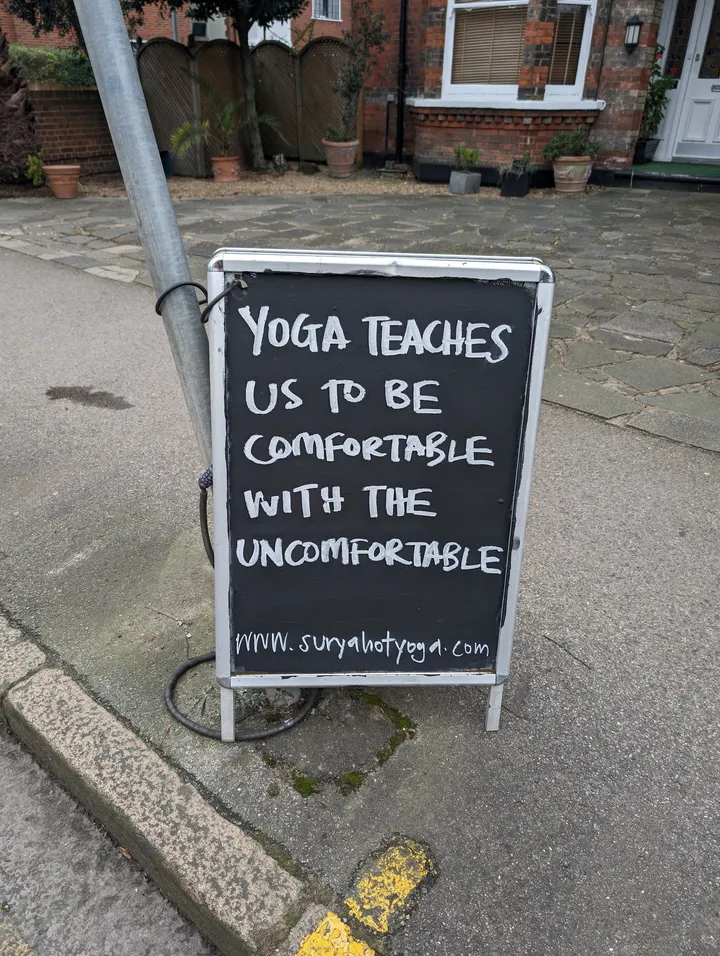 YOGA TEACHES
US TO BE
COMFORTABLE
WITH THE
UNCOMFORTABLE
www.suryahotyoga.com